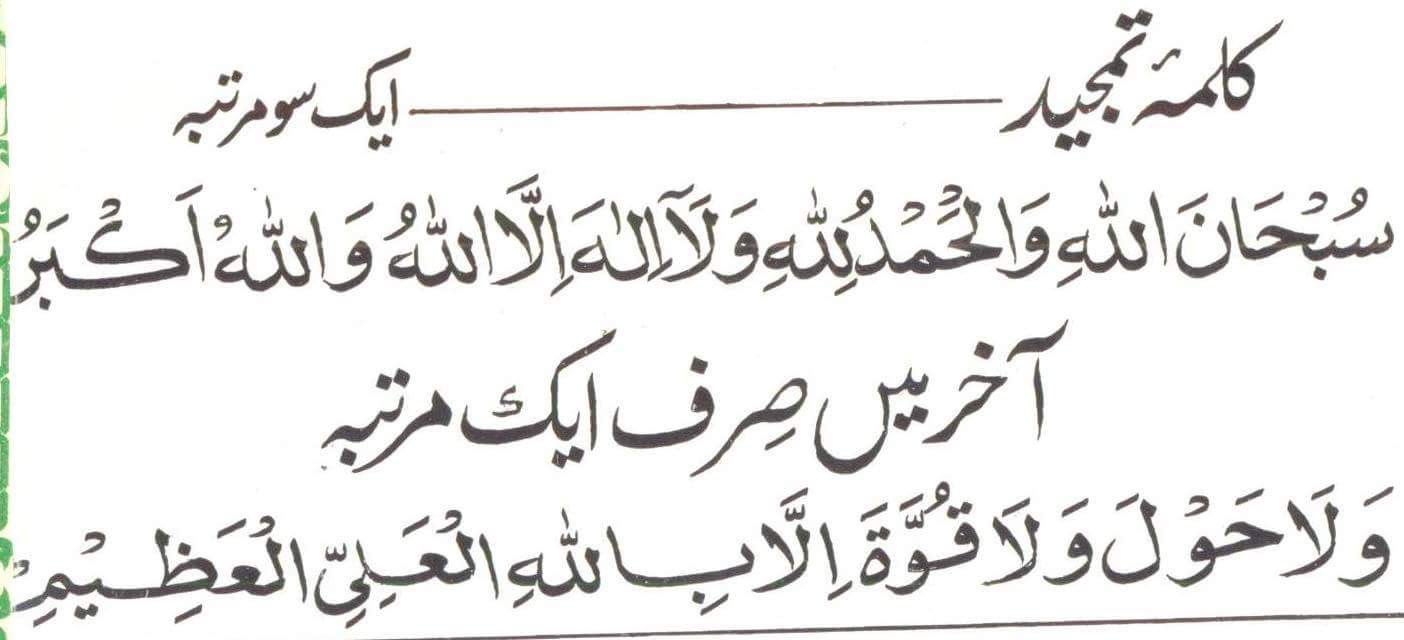 کلمۂ تمجید ـــــــ ایک سو مرتبہ
سُبْحَانَ اللّٰهِ وَالْحَمْدُ لِلّٰهِ وَلَآ اِلٰهَ اِلَّا اللّٰهُ وَاللّٰهُ اَکْبَرُ
آخر میں صِرف ایک مرتبہ
وَلَا حَوْلَ وَلَا قُوَّةَ اِلَّا بِاللّٰهِ الْعَلِیِّ الْعَظِیْمِ